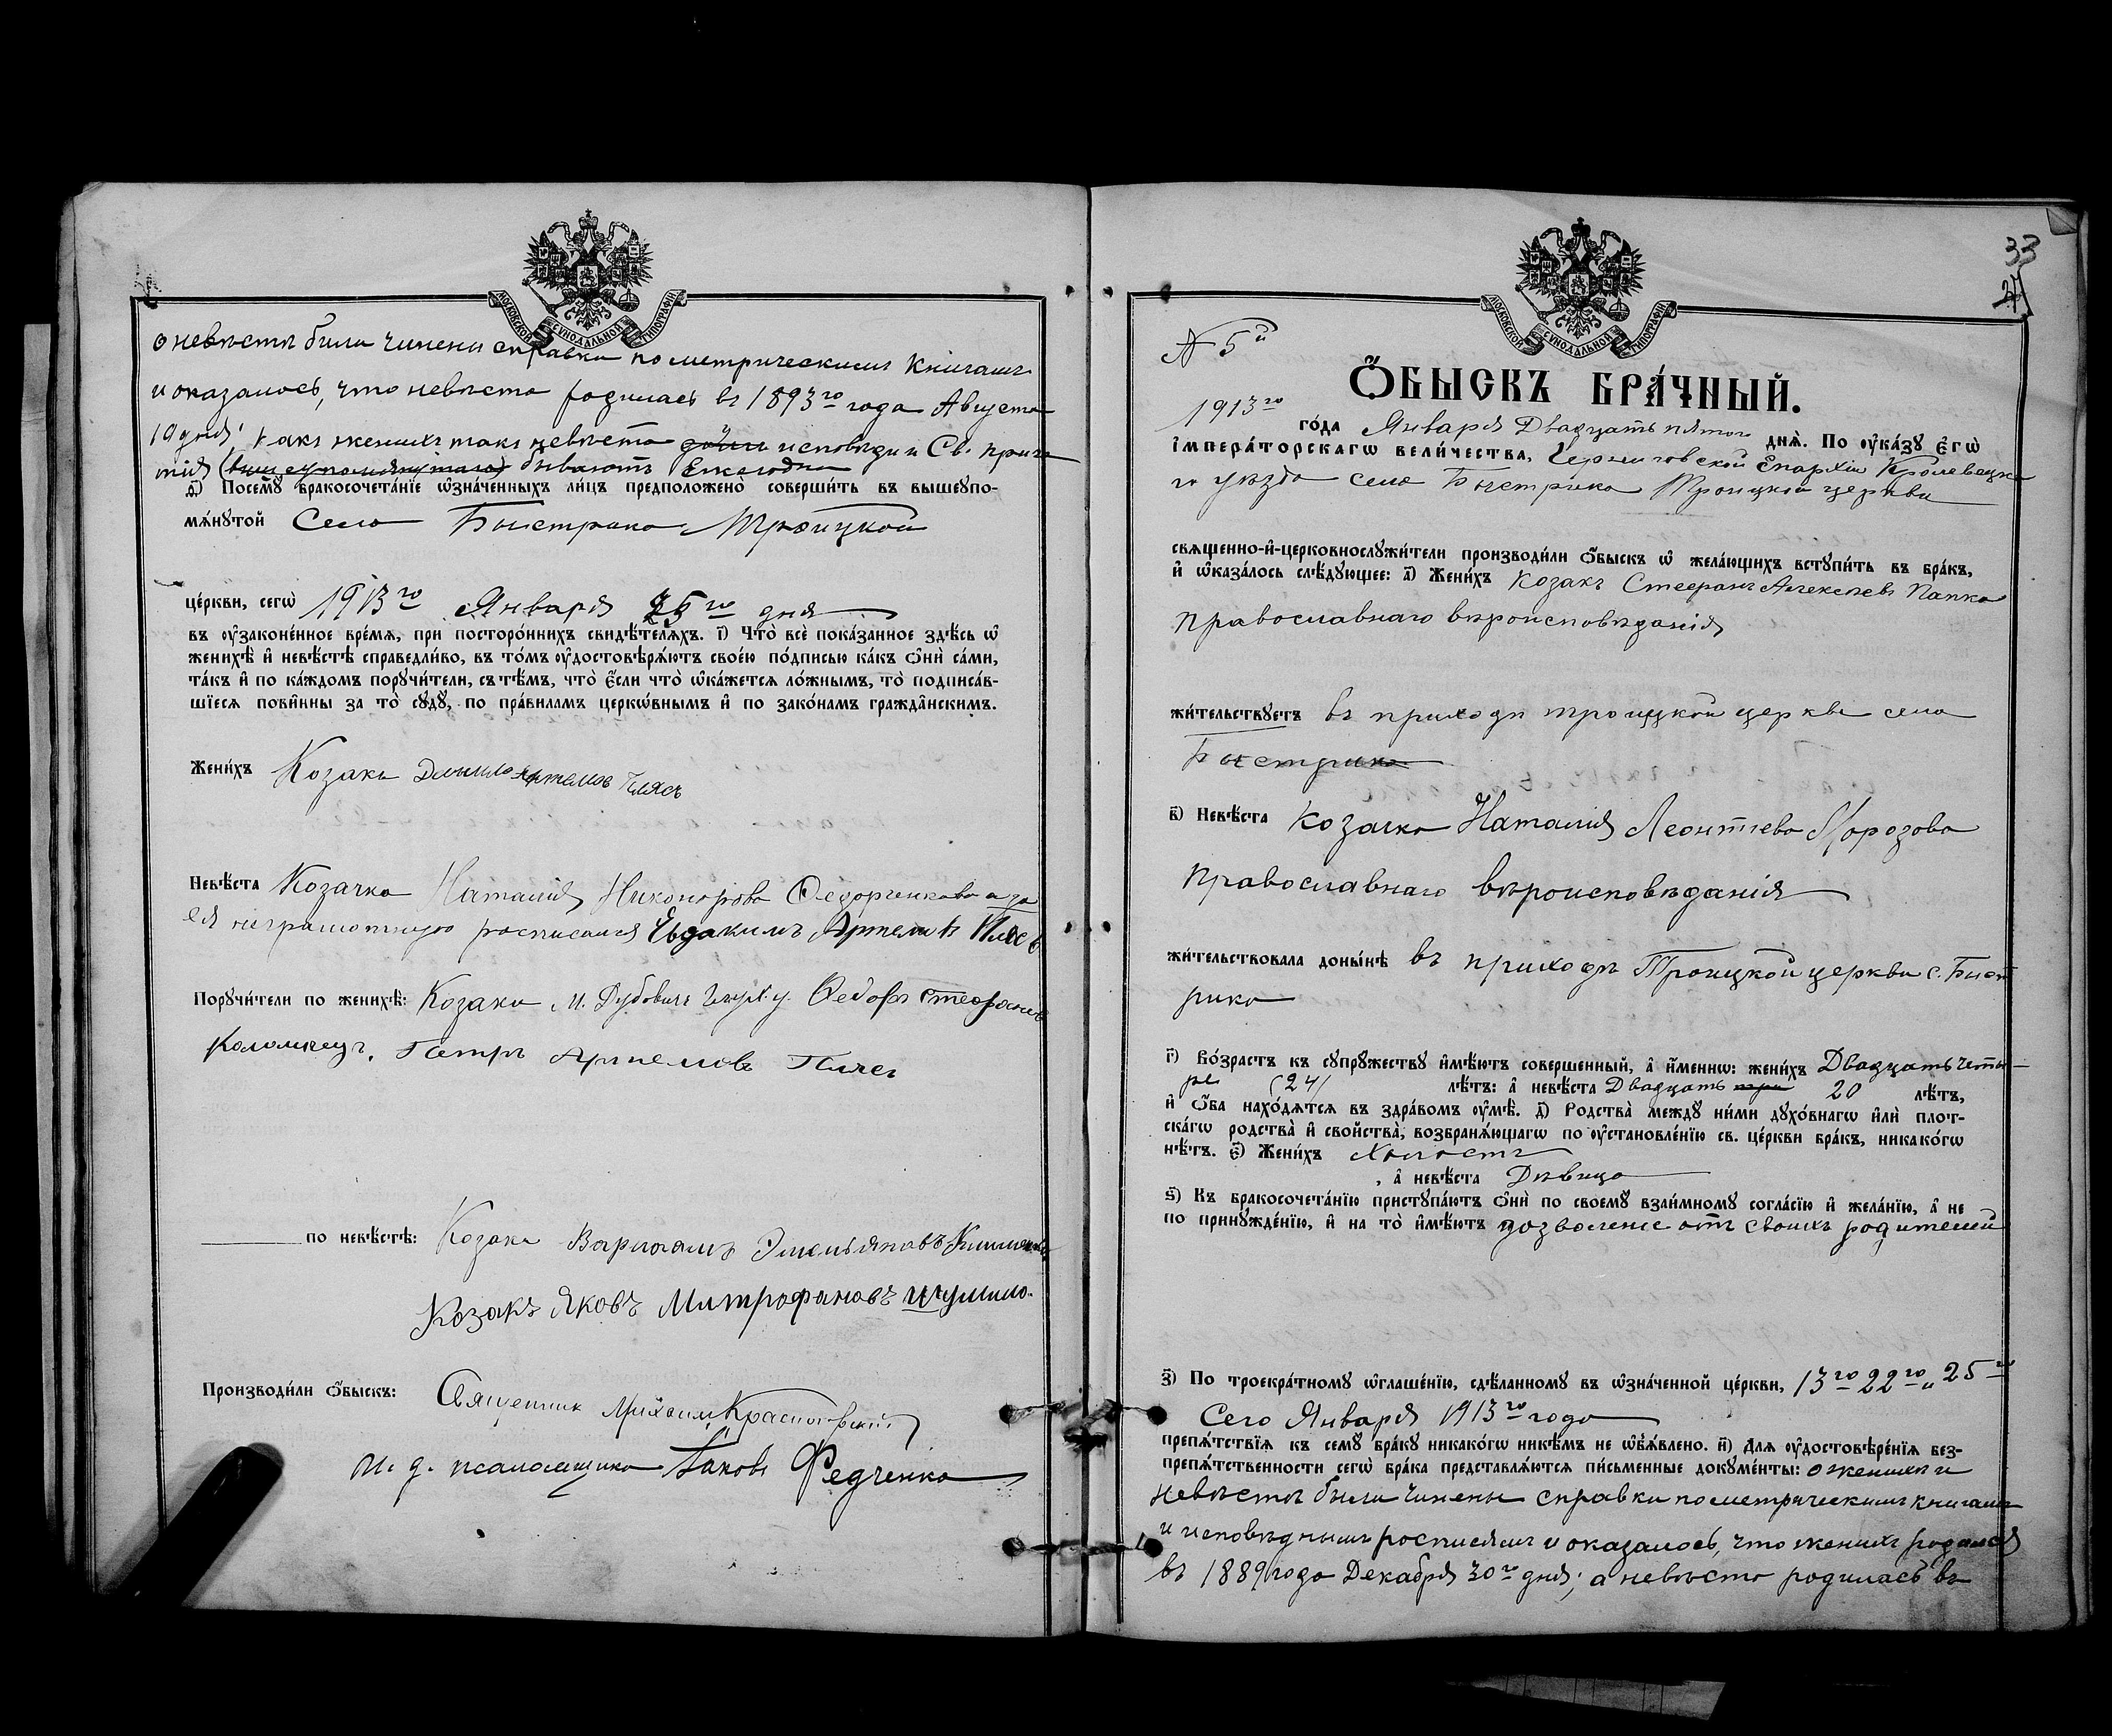 МОСКОВСКОЙ СѴНОДАЛЬНОЙ ТИПОГРАФІИ
о невѣстѣ были чинены справки по метрическимъ книгамъ
и оказалось, что невѣста родилась въ 1893го года Августа
19 дня; какъ женихъ такъ невѣста исповѣди и Св. прича
тія бываютъ Ежегодно
д҃) Посемꙋ̀ бракосочета́нїе ѡ҆зна́ченныхъ ли́цъ предположено̀ соверши́ть въ вышеупо-
мѧ́нꙋтой Села Быстрика Троицкой
це́ркви, сегѡ̀ 1913го Января 25го дня
въ ᲂу҆законе́нное вре́мѧ, при посторо́ннихъ свидѣ́телѧхъ. і҃) Что̀ всѐ пока́занное здѣ́сь ѡ҆
женихѣ̀ и҆ невѣ́стѣ справедли́во, въ то́мъ ᲂу҆достовѣрѧ́ютъ свое́ю по́дписью ка́къ ѻ҆нѝ са́ми,
та́къ и҆ по ка́ждомъ порꙋчи́тели, съ тѣ́мъ, что̀ є҆́сли что̀ ѡ҆ка́жетсѧ ло́жнымъ, то̀ подписа́в-
шїесѧ пови́нны за то̀ сꙋдꙋ̀, по пра́виламъ церкѡ́внымъ и҆ по зако́намъ гражда̂нскимъ.
Жени́хъ Козакъ Данило Артемов
Невѣ́ста Козачка Наталія Никонорова Федорченкова а за
ея неграмотную росписался Евдакимъ Артемовъ
Порꙋчи́тели по женихѣ̀: Козаки М. Федоръ Стефановъ
Коломіецъ. Петръ Артемовъ
по невѣ́стѣ: Козаки Варлаамъ Емельяновъ
Козакъ Яковъ Митрофановъ Шумило.
Производи́ли ѻ҆́быскъ: Священник Михаилъ
И. д. псаломщика Іаковъ Федченко
33
МОСКОВСКОЙ СѴНОДАЛЬНОЙ ТИПОГРАФІИ
№ 5й
Ѻ҆́БЫСКЪ БРА́ЧНЫЙ.
1913го го́да Января Двадцать пятого днѧ̀. По ᲂу҆ка́зꙋ є҆гѡ̀
і҆мпера́торскагѡ вели́чества, Черниговской Епархіи Кролевецка
го уѣзда села Быстрика Троицкой церкви
свѧщенно-и҆-церковнослꙋжи́тели производи́ли ѻ҆́быскъ ѡ҆ жела́ющихъ встꙋпи́ть въ бра́къ,
и҆ ѡ҆каза́лось слѣ́дꙋющее: а҃) Жени́хъ Козакъ Стефанъ Алексѣевъ Папка
православнаго вѣроисповѣданія
жи́тельствꙋетъ въ приходѣ троицкой церкви села
Быстрика
в҃) Невѣ́ста Козачка Наталія Леонтева Морозова
православнаго вѣроисповѣданія
жи́тельствовала доны́нѣ въ приходѣ Троицкой церкви с. Быст
рика
г҃) Во́зрастъ къ сꙋпрꙋ́жествꙋ и҆мѣ́ютъ соверше́нный, а҆ и҆́меннѡ: жени́хъ Двадцать четы-
ре (24) лѣ́тъ: а҆ невѣ́ста Двадцать три 20 лѣ́тъ,
и҆ ѻ҆́ба нахо́дѧтсѧ въ здра́вомъ ᲂу҆мѣ̀. д҃) Родства̀ междꙋ̀ ни́ми дꙋхо́внагѡ и҆лѝ плот-
ска́гѡ родства̀ и҆ свойства̀, возбранѧ́ющагѡ по ᲂу҆становле́нїю св. це́ркви бра́къ, никако́гѡ
нѣ́тъ. є҃) Жени́хъ Холостъ
, а҆ невѣ́ста Дѣвица
ѕ҃) Къ бракосочета́нїю пристꙋпа́ютъ ѻ҆нѝ по своемꙋ̀ взаи́мномꙋ согла́сїю и҆ жела́нїю, а҆ не
по принꙋжде́нїю, и҆ на то̀ и҆мѣ́ютъ дозволение отъ своихъ родителей
з҃) По троекра́тномꙋ ѡ҆глаше́нїю, сдѣ́ланномꙋ въ ѡ҆зна́ченной це́ркви, 13го 22го и 25го
Сего Января 1913го года
препѧ́тствїѧ къ семꙋ̀ бра́кꙋ никако́гѡ никѣ́мъ не ѡ҆бъѧ́влено. и҃) Длѧ ᲂу҆достовѣре́нїѧ без-
препѧ́тственности сегѡ̀ бра́ка представлѧ́ютсѧ пи́сьменные докꙋме́нты: о женихѣ и
невѣстѣ были чинены справки по метрическимъ книгамъ
и исповѣднымъ росписямъ и оказалось, что женихъ родился
въ 1889 года Декабря 30го дня; а невѣста родилась въ